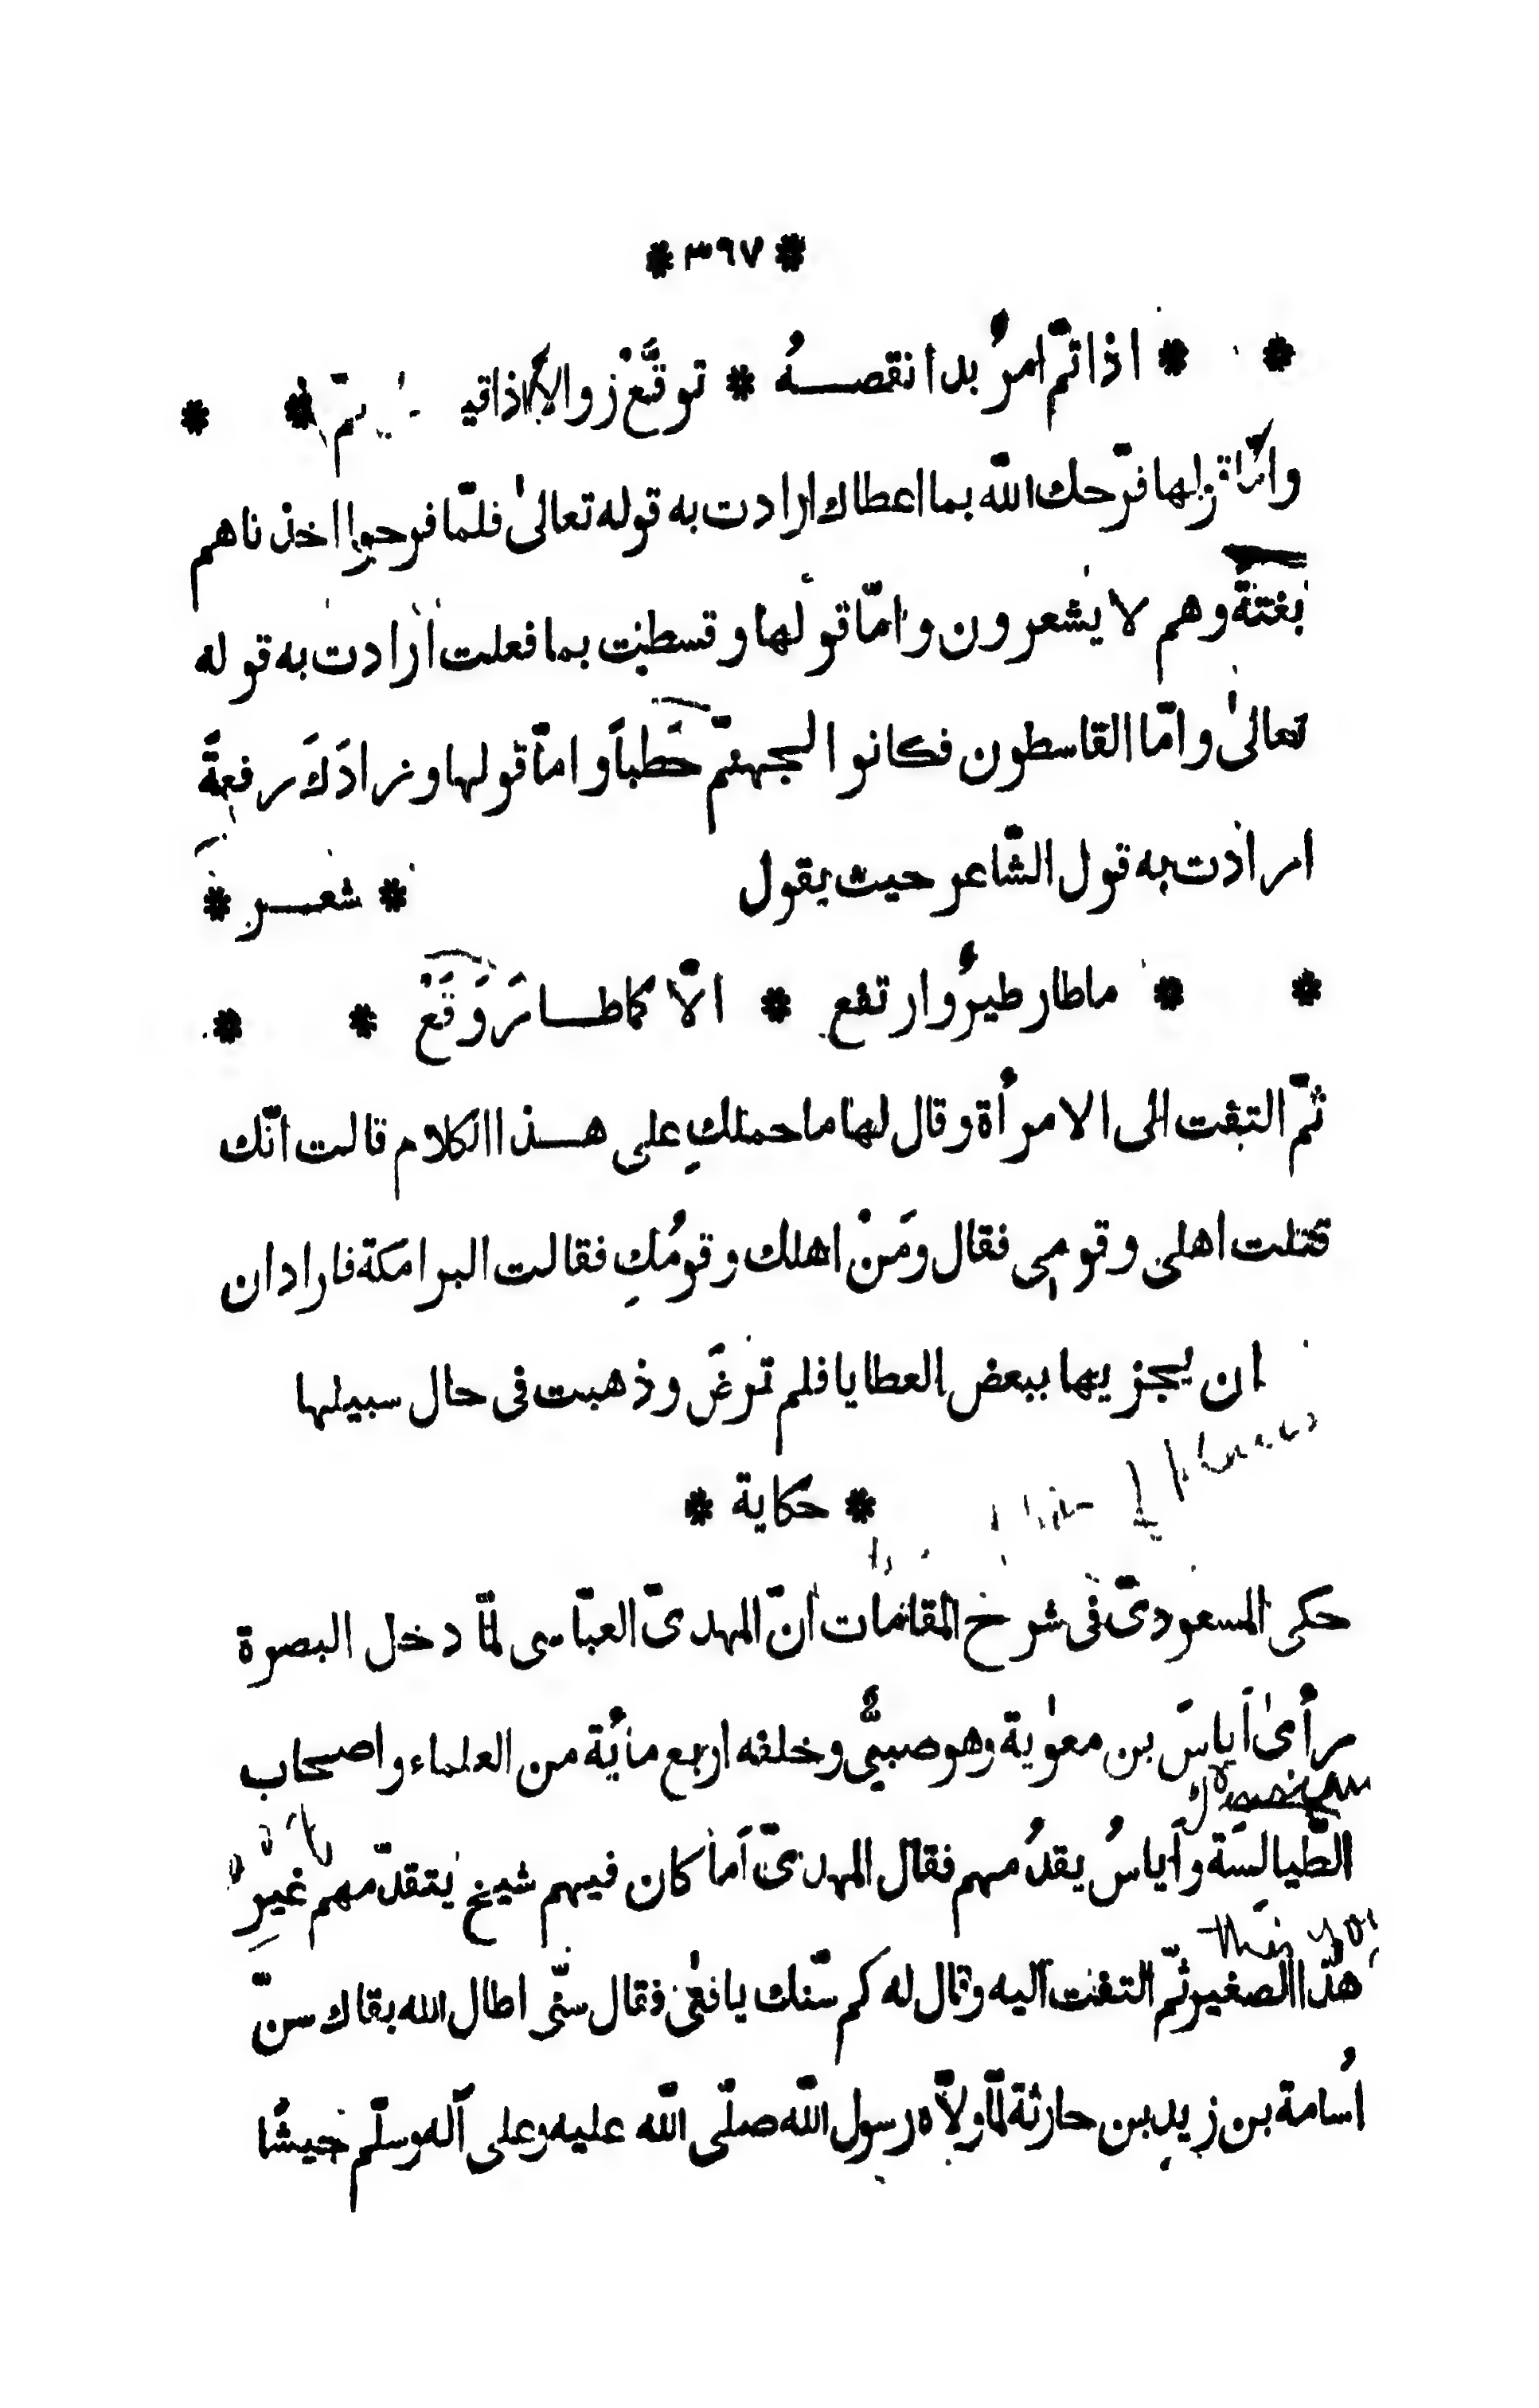 * ٣٩٧ *
* * اذا تمّ امرُ بدا نقصــهُ * توقَّعْ زوالاً اذا قيـ تمّ * *
وامّا قولها فرّحك اللّه بما اعطاك ارادت به قوله تعالىٰ فلمّا فرحوا اخذ ناهم
بغتةً وهم لا يشعرون وامّا قولها وقسطت بما فعلت ارادت به قوله
تعالىٰ وامّا القاسطون فكانوا لجهنّم حَطباً وامّا قولها وزادَكَ رفعةً
ارادت به قول الشّاعر حيث يقول * شعــر *
* * ما طار طيرُ وارتفع * الّا كما طــارَ وَقَعْ * *
ثمّ التفت الى الامرأة وقال لها ما حملكِ على هــذا الكلام قالت انّك
قتلت اهلى وقومى فقال ومَنْ اهلك وقومُكِ فقالت البرامكة فاراد ان
ان يجزيها ببعض العطايا فلم ترغَ وذهبت فى حال سبيلها
* حكاية *
حكى المسعودىّ فى شرح المقامات انّ المهدىّ العبّاسى لمّا دخل البصرة
رأىٰ اَياسَ بن معوٰية وهو صبىٌّ وخلفه اربع مأية من العلماء واصحاب
الطّيالسَة واَياسُ يقدُمهم فقال المهدىّ اَما كان فيهم شيخ يتقدّمهم غيرِ
هذا الصغير ثمّ التفت اليه وقال له كم سنّك يا فتى فقال سنّى اطال الله بقاك سنّ
اُسامة بن زيد بن حارثة لمّا ولّاه رسول اللّه صلّى اللّه عليه وعلى آله وسلّم جيشًا